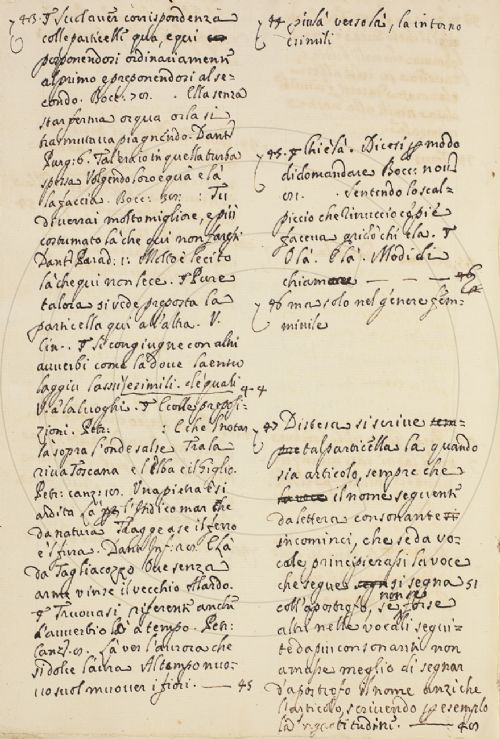 43. Si suol aver corrispondenza
colle particelle qua, e qui
preponendosi ordinariamente
al primo e preponendosi al se-
condo. Bocc. nov. . Ella senza
star ferma or qua or la si
trasmutava piagnendo. Dante
Purg: 6. Tal era io in quella turba
spessa Volgendo loro e quà e là
la faccia. Bocc: nov: : Tu
diverrai molto migliore, e più
costumato là che qui non faresti
Dante Parad: 1: Molto è lecito
là che qui non lece. Pure
talora si vede preposta la
particella qui all'altra. V.
lin-. Si congiugne con altri
avverbi come là dove là entro
laggiu lassù, e simili, de' quali 44
V. a' luoghi. E colle preposi-
zioni. Petr: : E che l' notar
là sopra l'onde salse Tra la
riva Toscana e l'Elba e il Giglio.
Petr: canz: nov. Una pietra è sì
ardita Là per l'Indico mar che
da natura Tragge a se il ferro
Dante Inf: 28. E là
da Tagliacozzo Ove senza
arme vinse il vecchio Alardo.
Truovasi riferente anche
l'avverbio là a tempo. Petr:
Canz: Là ver l'aurora che
si dolce l'aura Al tempo nuo-
vo suol muovere i fiori. — 45
44 più là verso là, la intorno
e simili
45. Chi è là. Dicesi per modo
di domandare Bocc: nov:
. Sentendo lo scal-
piccio che Rinuccio co' piè
faceva gridò chi è là.
Olà. Olà. Modi di
chiamare — — — 46
46 ma solo nel genere fem-
minile
47 Distesa si scrive
tal particella la quando
sia articolo, sempre che
il nome seguente
da lettera consonante
incominci, che se da vo-
cale principierassi la voce
che segue si segna 51
coll'apostrofo, se non se forse
altri nelle vocali segui-
te da più consonanti non
amasse meglio di segnar
d'apostrofo il nome anzi che
l'articolo, scrivendo per esemplo
la 'ngratitudine. — 48